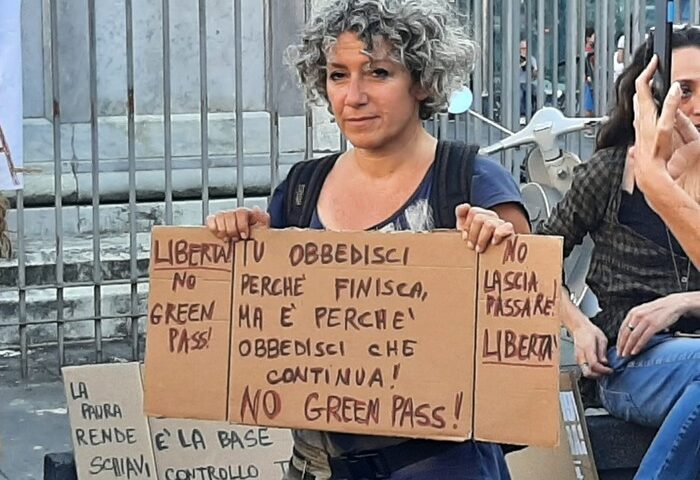 LIBERTA'
NO
GREEN
PASS!
TU OBBEDISCI
PERCHÈ FINISCA,
MA È PERCHE'
OBBEDISCI CHE
CONTINUA!
NO GREEN PASS!
NO
LASCIA
PASSARE!
LIBERTA'
LA
PAURA
RENDE
SCHIAVI
È LA BASE
CONTROLLO